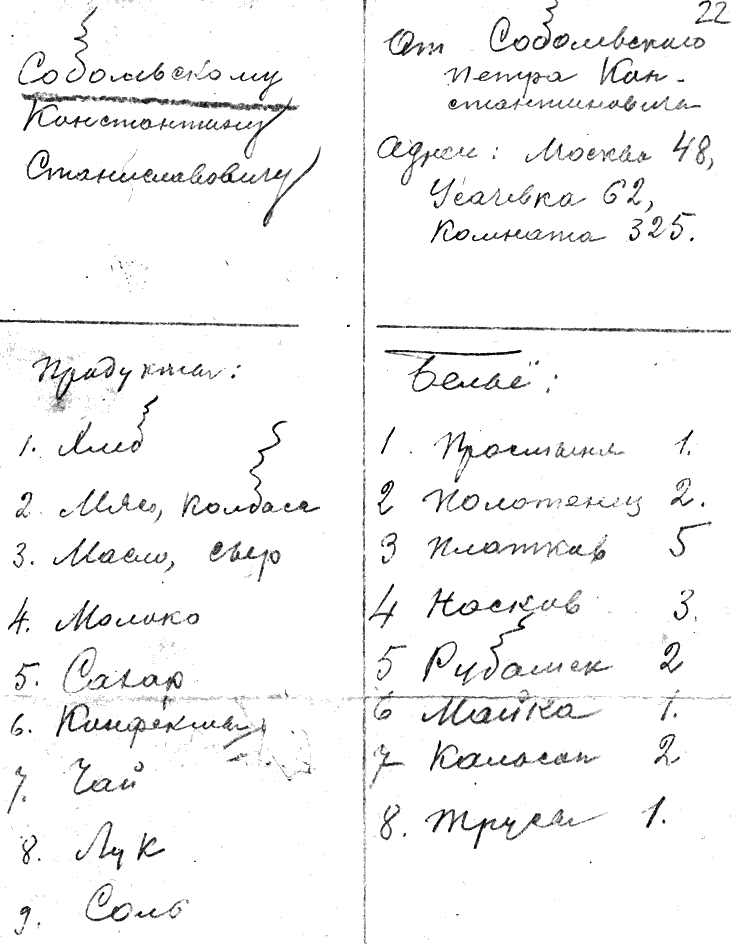 22
Соболевскому
Константину
Станиславовичу
От Соболевского
Петра Кон-
стантиновича
Адрес: Москва 48,
Усачевка 62,
Комната 325.
Продукты:
1. Хлеб
2 Мясо, Колбаса
3. Масло, сыр
4. Молоко
5. Сахар
6. Конфекты
7. Чай
8. Лук
9. Соль
Бельё:
1 Простыня 1.
2 Полотенец 2.
3 Платков 5
4 Носков 3.
5 Рубашек 2
6 Майка 1.
7 Кальсон 2
8. Трусы 1.